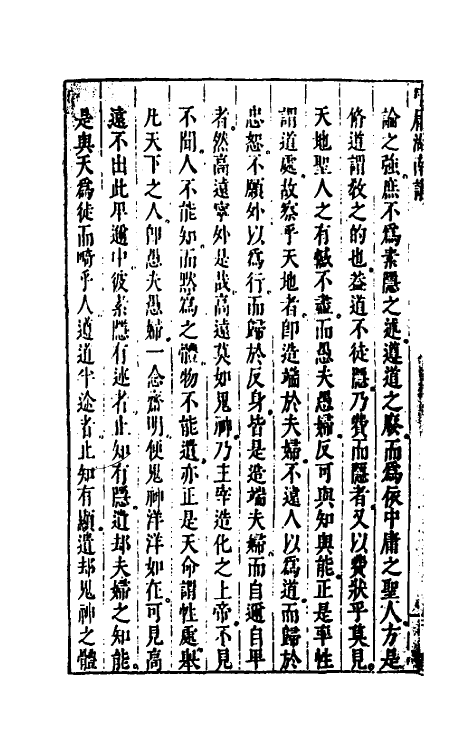 論之強庶不為素隱之述遵道之廢而為依中庸之聖人方是
脩道謂敎之的也葢道不徒隱乃費而隱者又以費狀乎莫見
天地聖人之有憾不盡而愚夫愚婦反可與知與能正是率性
謂道處故察乎天地者卽造端於夫婦不遠人以為道而歸於
忠恕不願外以為行而歸於反身皆是造端夫婦而自邇自卑
者然高遠寧外是哉高遠莫如鬼神乃主宰造化之上帝不見
不聞人不能知而黙為之體物不能遺亦正是天命謂性處舉
凡天下之人卽愚夫愚婦一念齋明便鬼神洋洋如在可見高
遠不出此卑邇中彼素隱有述者止知有隱遺却夫婦之知能
是與天為徒而畸乎人遵道半途者止知有顯遺却鬼神之體